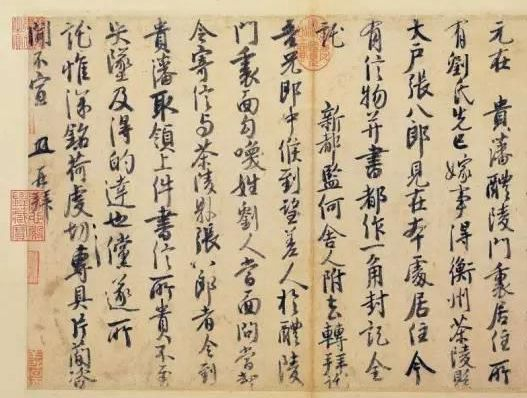 元在 貴藩醴陵門裏居住所
有劉氏先已嫁事得衡州茶陵縣
大戶張八郎見在本處居住今
有信物并書都作一角封記全
託 新都監何舍人附去轉拜託
吾兄郎中候到望差人於醴陵
門裏面勾喚姓劉人當面問當却
令寄信与茶陵縣張八郎者令到
貴藩取領上件書信所貴不至
失墜及得的達也儻遂所
託惟深銘荷虔切專具片簡咨
聞不宣 再拜